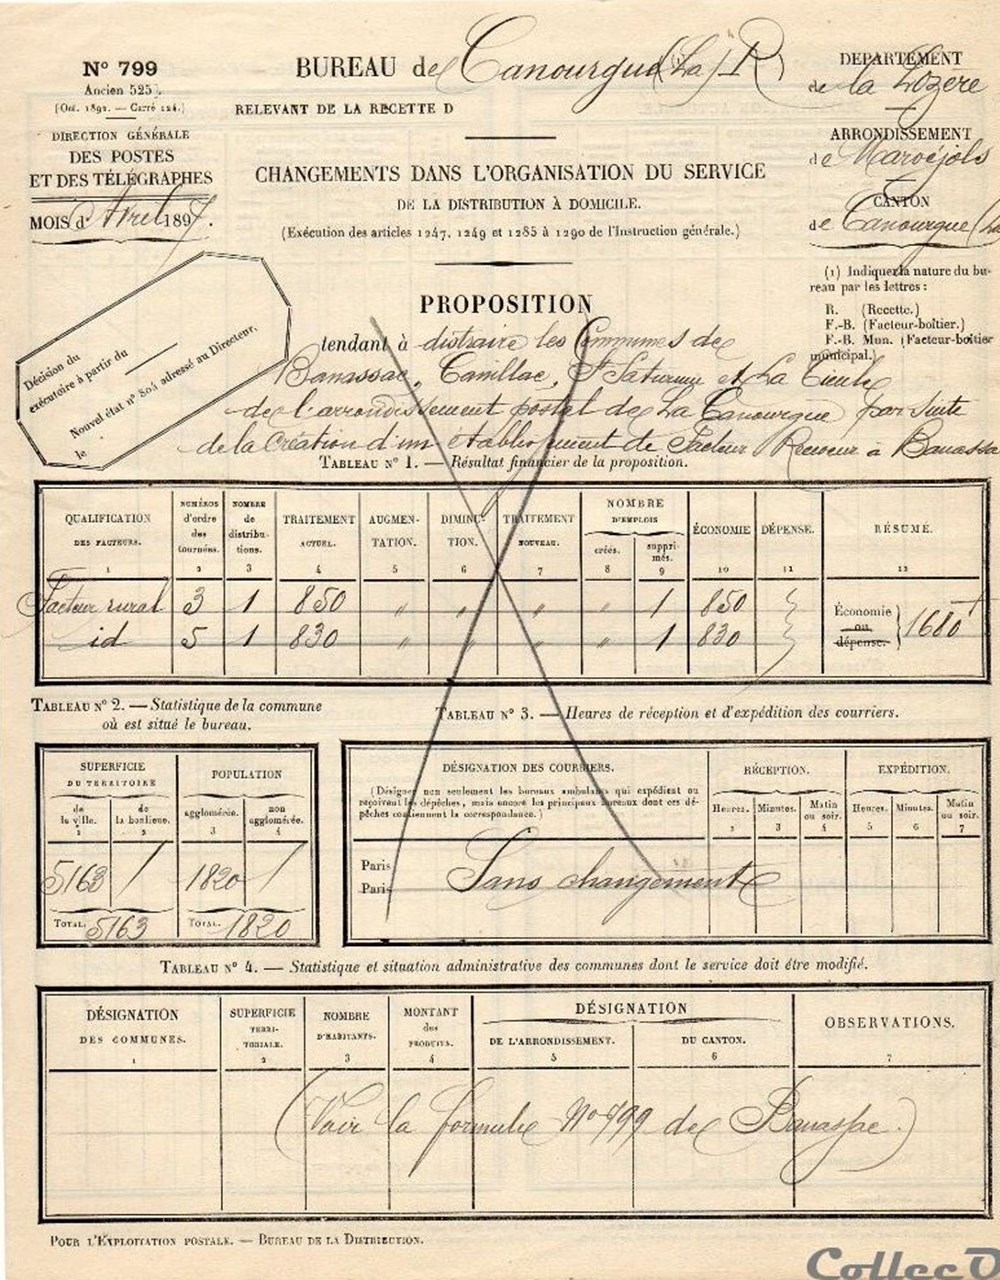 N° 799
Ancien 525.
(Oct. 1892. — Carré 124.)
DIRECTION GÉNÉRALE
DES POSTES
ET DES TÉLÉGRAPHES
MOIS d'Avril 1897.
BUREAU de Canourgue (La) (1) R
RELEVANT DE LA RECETTE D
CHANGEMENTS DANS L'ORGANISATION DU SERVICE
DE LA DISTRIBUTION À DOMICILE.
(Exécution des articles 1247, 1249 et 1285 à 1290 de l'Instruction générale.)
DEPARTEMENT
de la Lozère
ARRONDISSEMENT
de Marvéjols
CANTON
de Canourgue (La
(1) Indiquer la nature du bu-
reau par les lettres :
R. (Recette.)
F.-B. (Facteur-boîtier.)
F.-B. Mun. (Facteur-boîtier
municipal.)
Décision du
exécutoire à partir du
Nouvel état n° 804 adressé au Directeur,
le
PROPOSITION
tendant à distraire les Communes de
Banassac, Canillac, St Saturnin et La Tieule
de l'arrondissement postal de La Canourgue par suite
de la création d'un établissement de Facteur Receveur à Banassa
TABLEAU N° 1. — Résultat financier de la proposition.
QUALIFICATION DES FACTEURS. 1
NUMÉROS d'ordre des tournées. 2
NOMBRE de distributions. 3
TRAITEMENT ACTUEL. 4
AUGMENTATION. 5
DIMINUTION. 6
TRAITEMENT NOUVEAU. 7
NOMBRE D'EMPLOIS
créés. 8
supprimés. 9
ÉCONOMIE 10
DÉPENSE. 11
RÉSUMÉ. 12
Facteur rural 3 1 850 " " " " 1 850
id 5 1 830 " " " " 1 830
Économie ou dépense. 1680 f
TABLEAU N° 2. — Statistique de la commune
où est situé le bureau.
SUPERFICIE DU TERRITOIRE
POPULATION
de la ville. 1
de la banlieue. 2
agglomérée. 3
non agglomérée. 4
5163 / 1820 /
TOTAL. 5163 TOTAL. 1820
TABLEAU N° 3. — Heures de réception et d'expédition des courriers.
DÉSIGNATION DES COURRIERS.
(Désigner non seulement les bureaux ambulants qui expédient ou
reçoivent les dépêches, mais encore les principaux bureaux dont ces dé-
pêches contiennent la correspondance.)
RÉCEPTION.
Heures. 2 Minutes. 3 Matin ou soir. 4
EXPÉDITION.
Heures. 5 Minutes. 6 Matin ou soir. 7
Paris
Paris
Sans changement
TABLEAU N° 4. — Statistique et situation administrative des communes dont le service doit être modifié.
DÉSIGNATION DES COMMUNES. 1
SUPERFICIE TERRITORIALE. 2
NOMBRE D'HABITANTS. 3
MONTANT des PRODUITS. 4
DÉSIGNATION
DE L'ARRONDISSEMENT. 5
DU CANTON. 6
OBSERVATIONS. 7
(Voir la formule N° 799 de Banassac.)
POUR L'EXPLOITATION POSTALE. — BUREAU DE LA DISTRIBUTION.
CollecO